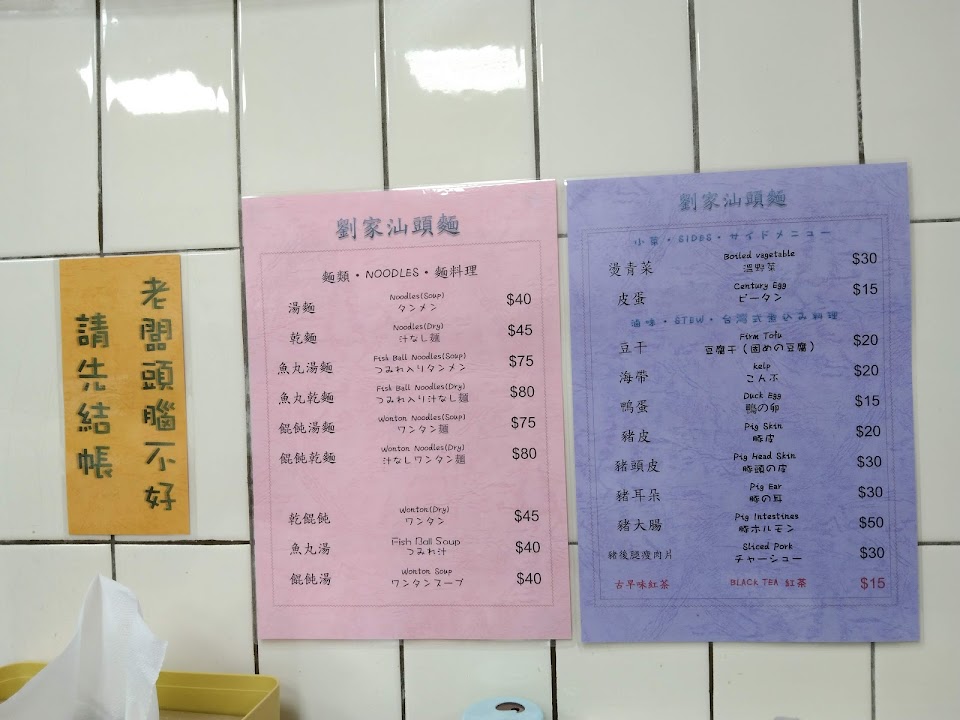 老闆頭腦不好
請先結帳
劉家汕頭麵
麵類・NOODLES・麵料理
湯麵 Noodles(Soup) タンメン $40
乾麵 Noodles(Dry) 汁なし麵 $45
魚丸湯麵 Fish Ball Noodles(Soup) つみわ入りタンメン $75
魚丸乾麵 Fish Ball Noodles(Dry) つみわ入り汁なし麵 $80
餛飩湯麵 Wonton Noodles(Soup) ワンタン麵 $75
餛飩乾麵 Wonton Noodles(Dry) 汁なしワンタン麵 $80
乾餛飩 Wonton(Dry) ワンタン $45
魚丸湯 Fish Ball Soup つみわ汁 $40
餛飩湯 Wonton Soup ワンタンスープ $40
劉家汕頭麵
小菜・SIDES・サイドメニュー
燙青菜 Boiled vegetable 溫野菜 $30
皮蛋 Century Egg ピータン $15
滷味・STEW・台灣式煮込み料理
豆干 Firm Tofu 豆腐干(固めの豆腐) $20
海帶 kelp こんぶ $20
鴨蛋 Duck Egg 鴨の卵 $15
豬皮 Pig Skin 豚皮 $20
豬頭皮 Pig Head Skin 豚頭の皮 $30
豬耳朵 Pig Ear 豚の耳 $30
豬大腸 Pig Intestines 豚ホルモン $50
豬後腿瘦肉片 Sliced Pork チャーシュー $30
古早味紅茶 BLACK TEA 紅茶 $15